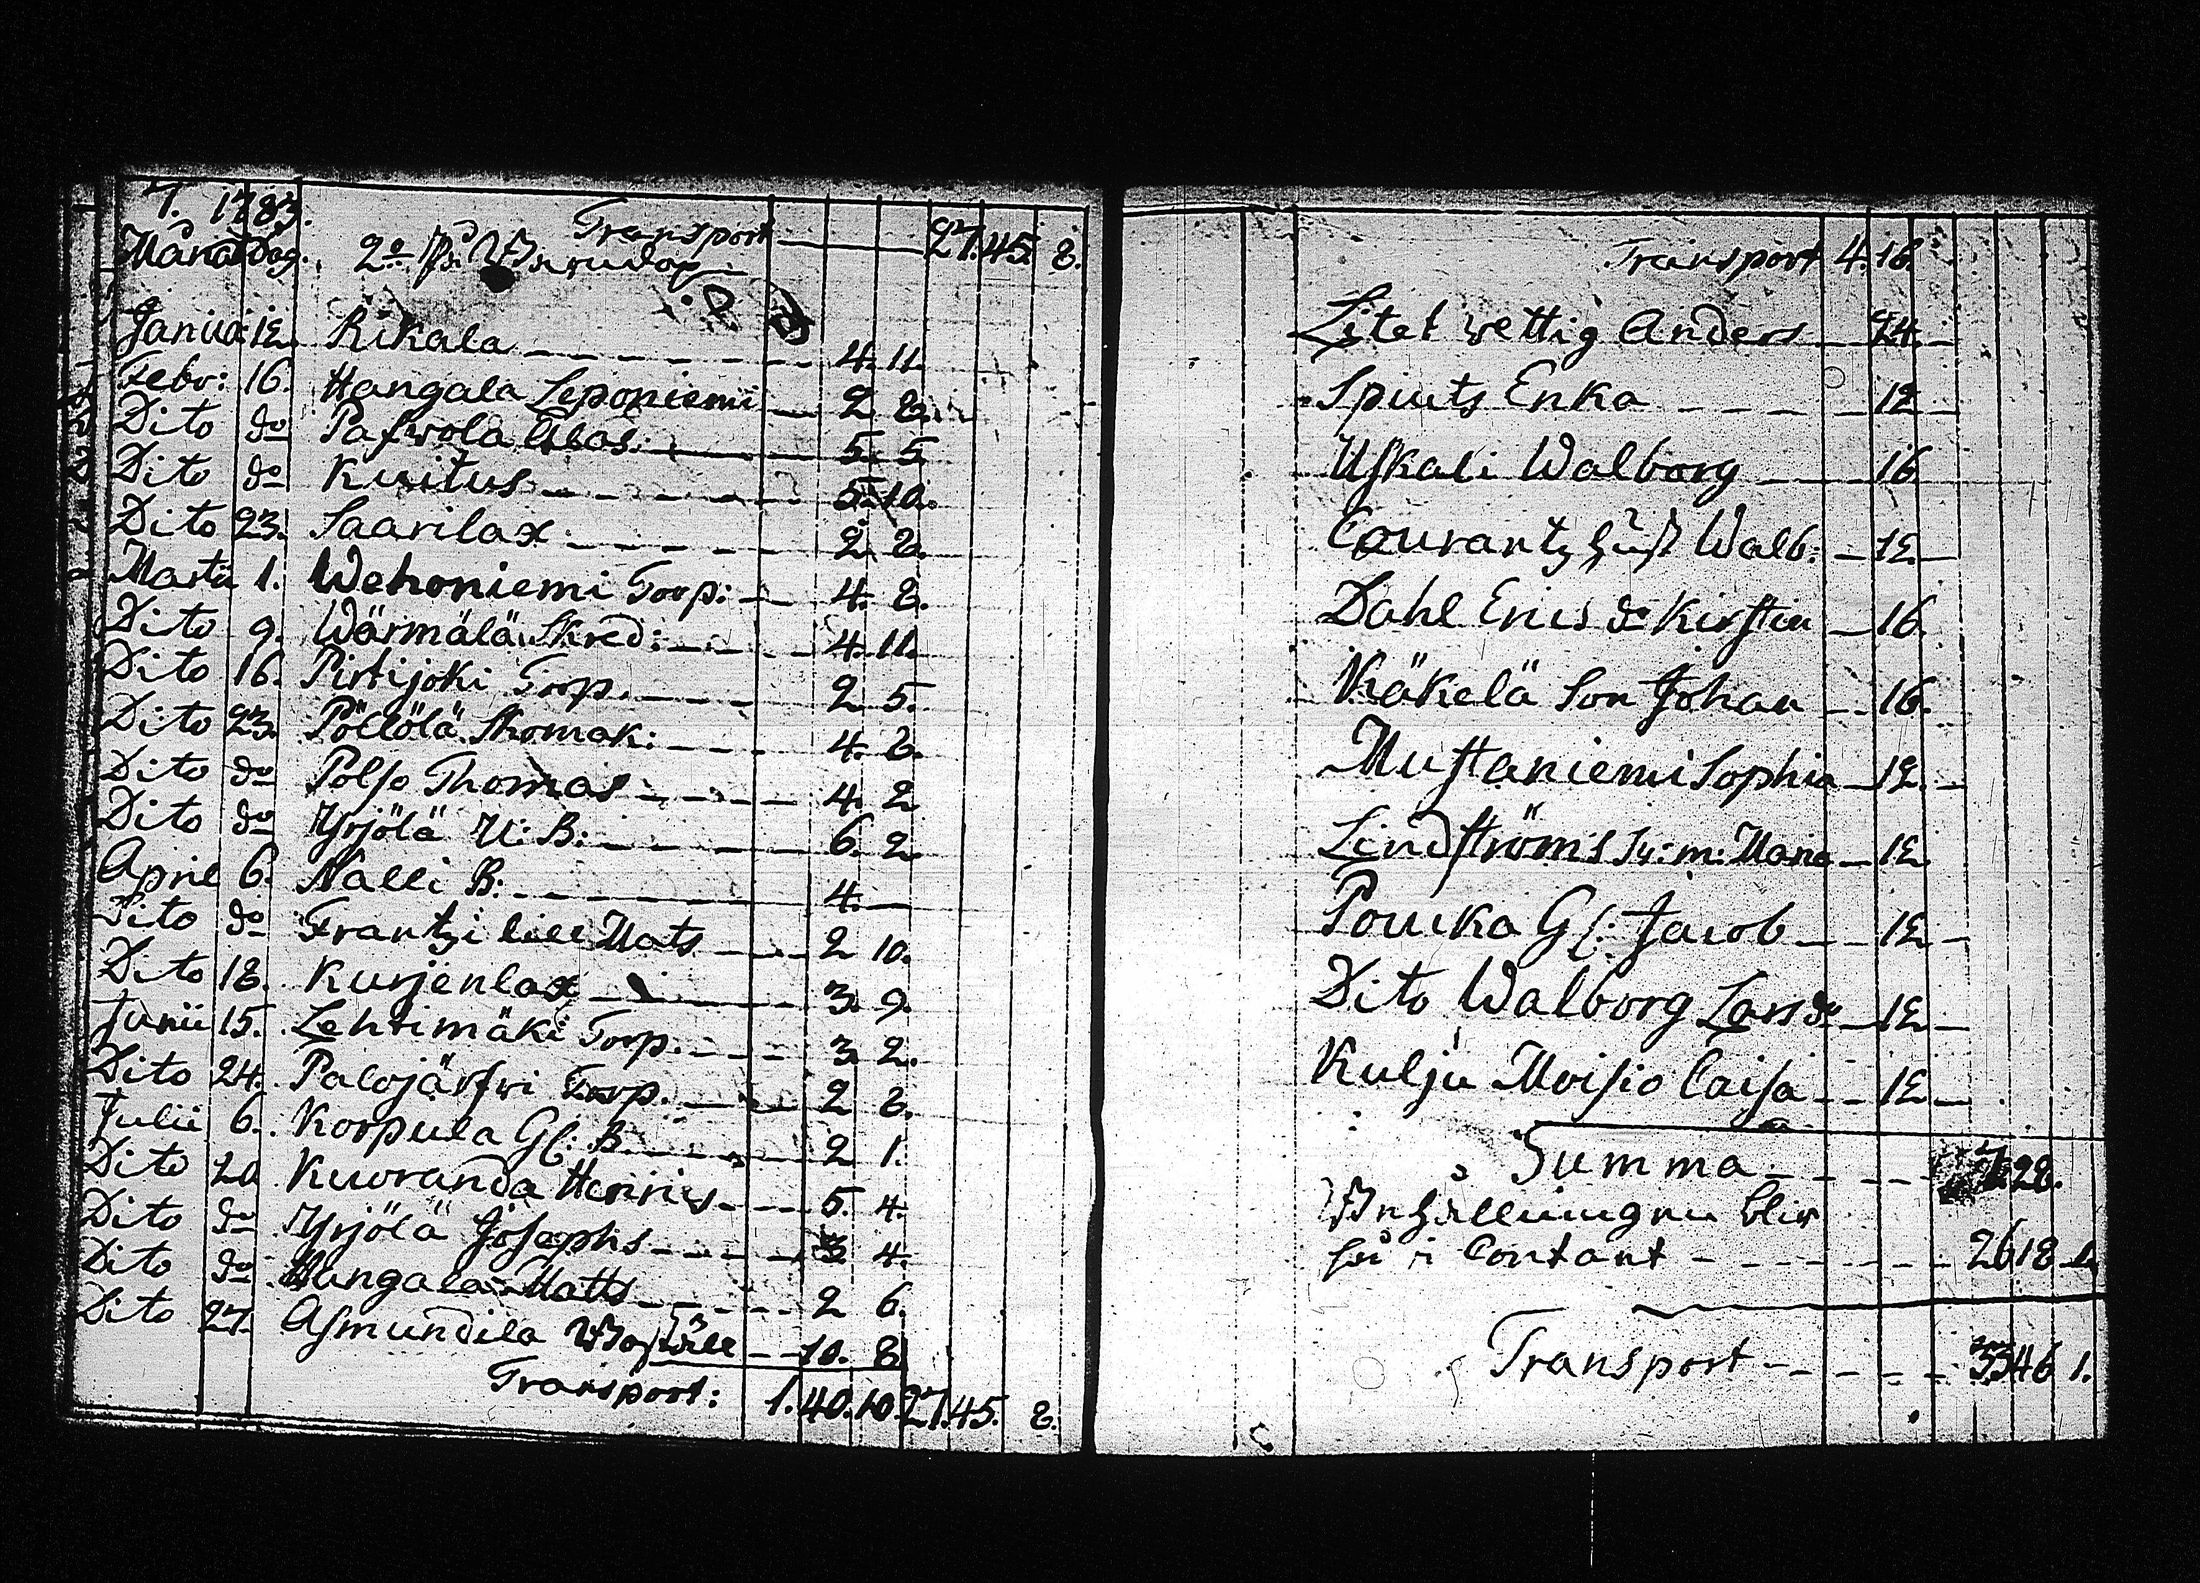 T. 1783.
Transport 27.45. 8.
Månad Dag.
Januá: 12 Rikala 4. 11.
Febr: 16. Hangala Leponiemi 2 8.
Dito do Pafwola 5. 5.
Dito do Kuitus 5. 10.
Dito 23. Saarilax 2. 8.
Martii 1. Wehoniemi Torp: 4. 8.
Dito 9. Wärmälä Skred: 4. 11.
Dito 16. Pirtijoki Torp. 2 5.
Dito 23. Pöllölä Skomak: 4. 8.
Dito do Polso Thomas 4. 2
Dito do Yrjölä U: B: 6. 2
April 6. Nalli B: 4.
Dito do Frantzi lill Mats 2 10.
Dito 18. Kurjenlax 3. 9.
Junii 15. Lehtimäki Torp. 3 2.
Dito 24. Palojärfwi Torp. 2 8.
Julii 6. Korpula Gl: B. 2 1.
Dito 20 Kuoranda Henrics 5. 4.
Dito do Yrjölä Josephs 3 4.
Dito do Hangala Matts 2 6.
Dito 27. Asmundila 10. 8
Transport: 1.40.10. 27.45. 8.
Transport 4. 16.
Litet wettig Anders 24.
Spiuts Enka 12
Uskali Walborg 16
Courantz Hust Walb: 12
Dahl Erics do Kirstin 16.
Käkelä Son Johan 16.
Mustaniemi Sophia 12.
Lindströms Sv: m: Maria 12
Poucka Gl: Jacob 12
Dito Walborg Larsdr 12
Kulju Moisio Caisa 12
Summa 7 28.
Behållningen blir
så i Contant 26 18 1.
Transport 33 46 1.